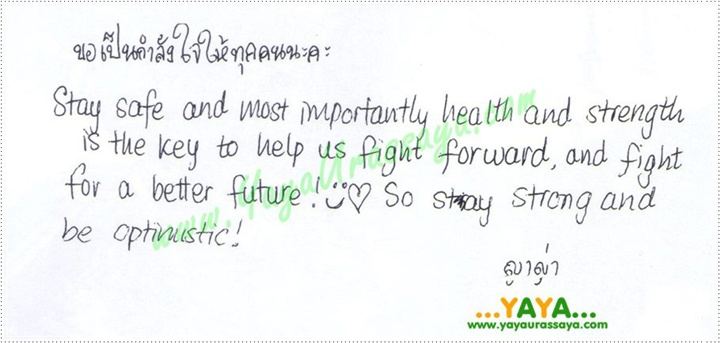 ขอเป็นกำลังใจให้ทุกคนนะคะ
Stay safe and most importantly health and strength
is the key to help us fight forward, and fight
for a better future! So stay strong and
be optimistic!
ญาญ่า
...YAYA...
www.yayaurassaya.com
www.YayaUrassaya.com